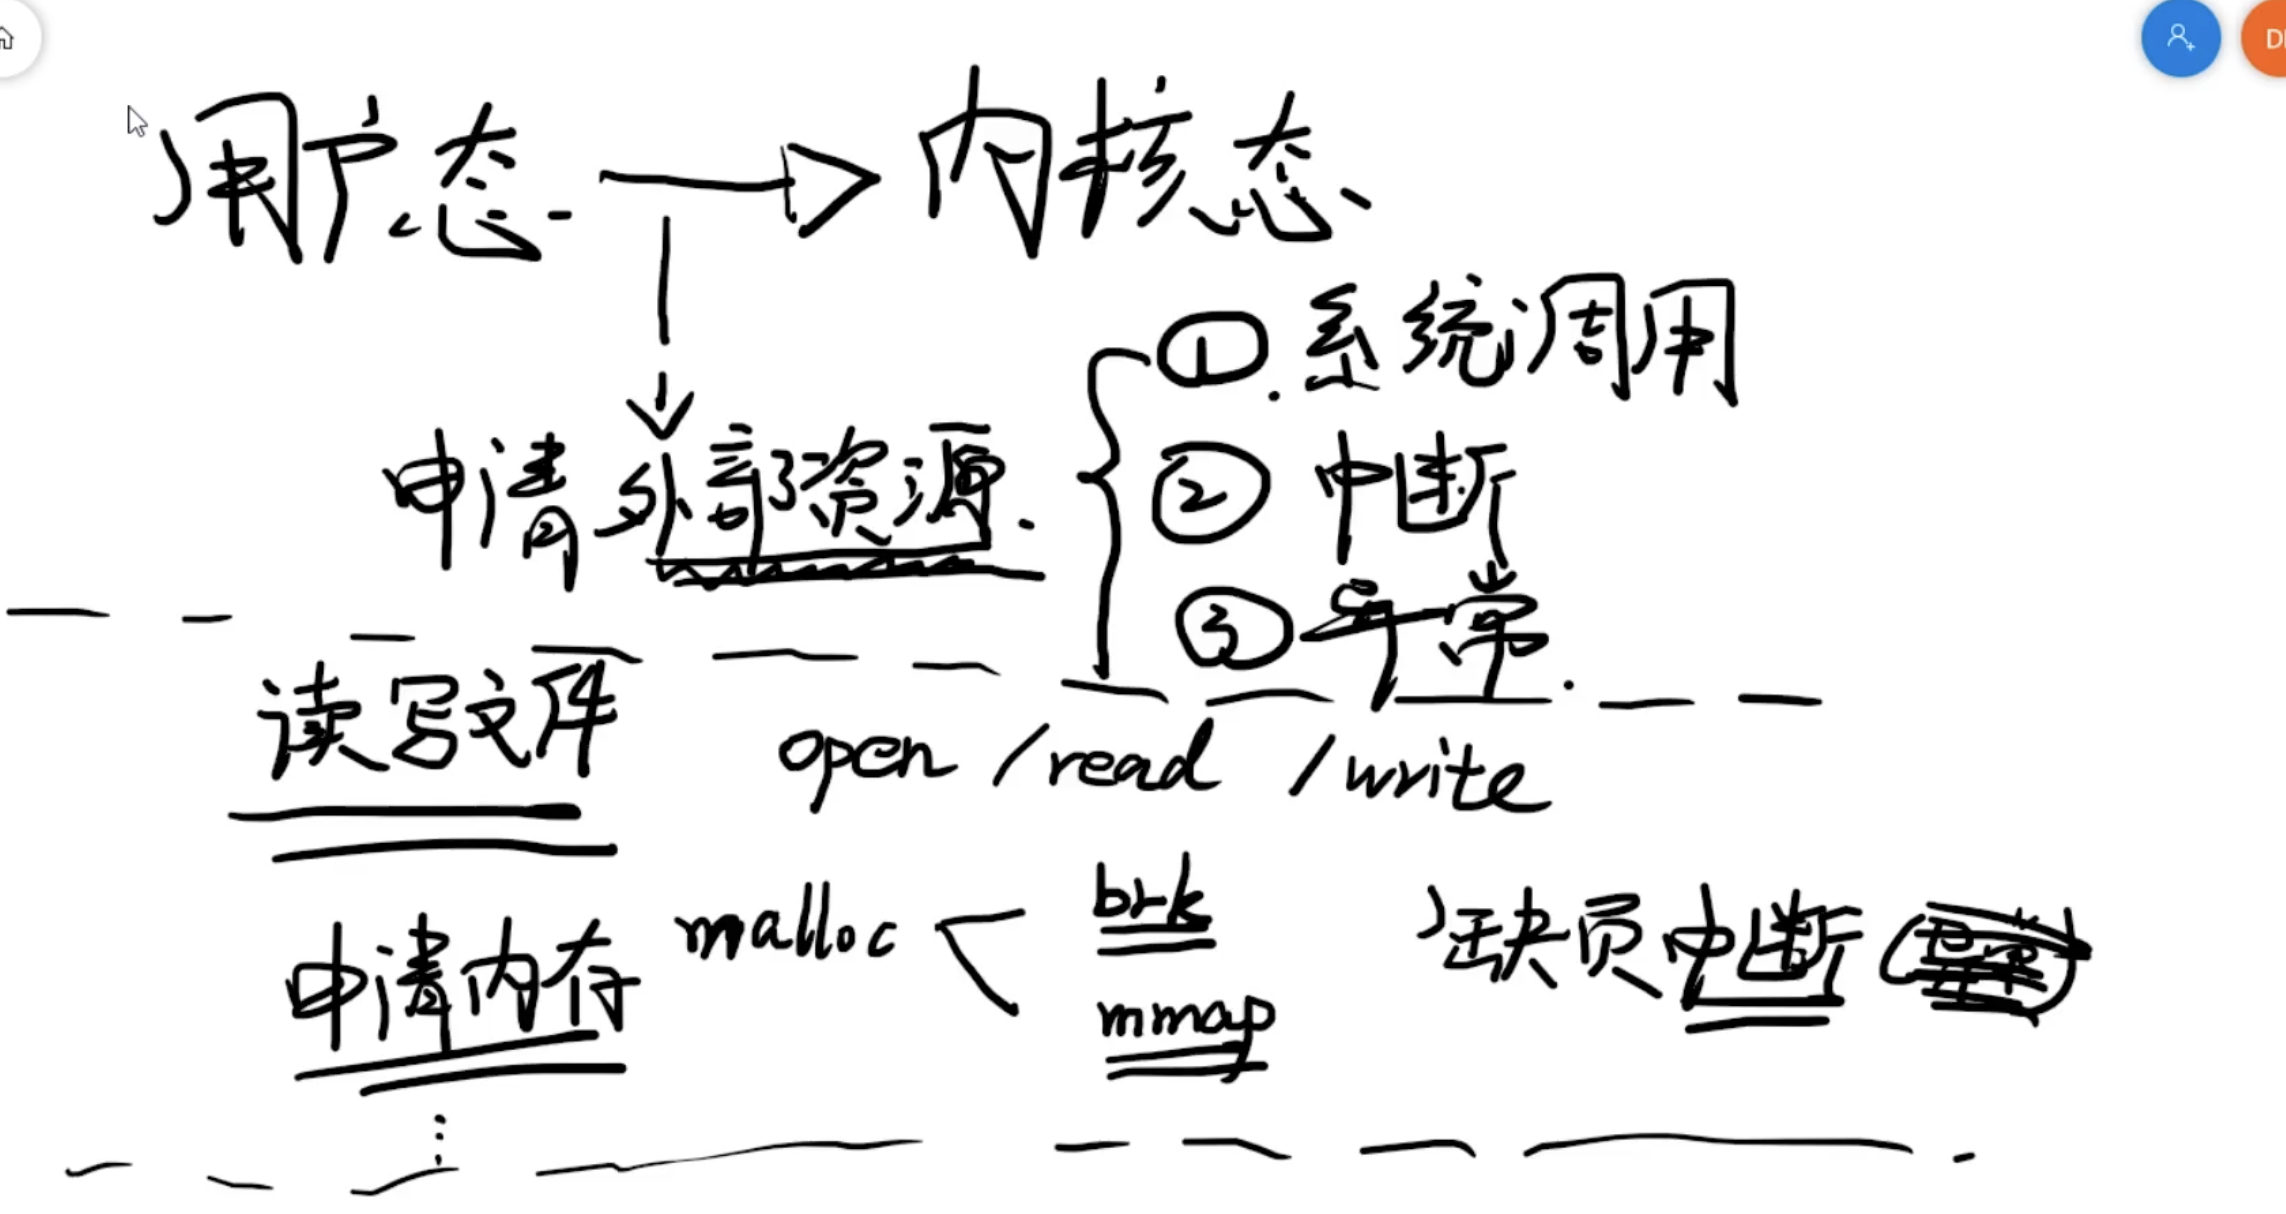 用户态 → 内核态
① 系统调用
申请外部资源.
② 中断
③ 异常.
读写文件 open /read /write
申请内存 malloc brk 缺页中断
mmap